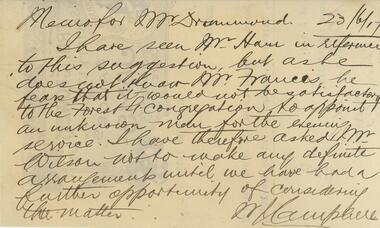 Memo for Mr Drummond 23/6/17
I have seen Mr Ham in reference
to this suggestion, but as he
does not know Mr Frances, he
fears that it would not be satisfactory
to the Forest St Congregation, to appoint
an unknown man for the evening
service. I have therefore asked Mr
Wilson not to make any definite
arrangements until we have had a
further opportunity of considering
the matter.
Campbell